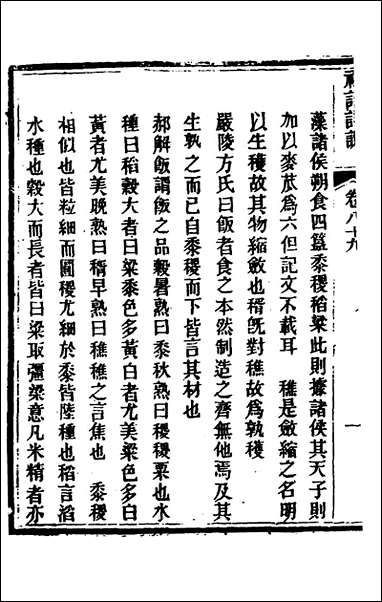 禮記詳說
卷八十九
一
藻諸侯朔食四簋黍稷稻梁此則據諸侯其天子則
加以麥苽爲六但記文不載耳　穛是斂縮之名明
以生穫故其物縮斂也稰旣對穛故爲孰穫
嚴陵方氏曰飯者食之本然制造之齊無他焉及其
生孰之而已自黍稷而下皆言其材也
郝解飯謂飯之品穀暑熟曰黍秋熟曰稷稷粟也水
種曰稻穀大者曰梁黍色多黃白者尤美梁色多白
黃者尤美晚熟曰稰早熟曰穛穛之言焦也　黍稷
相似也皆粒細而圓稷尤細於黍皆陸種也稻言滔
水種也穀大而長者皆曰梁取彊梁意凡米精者亦